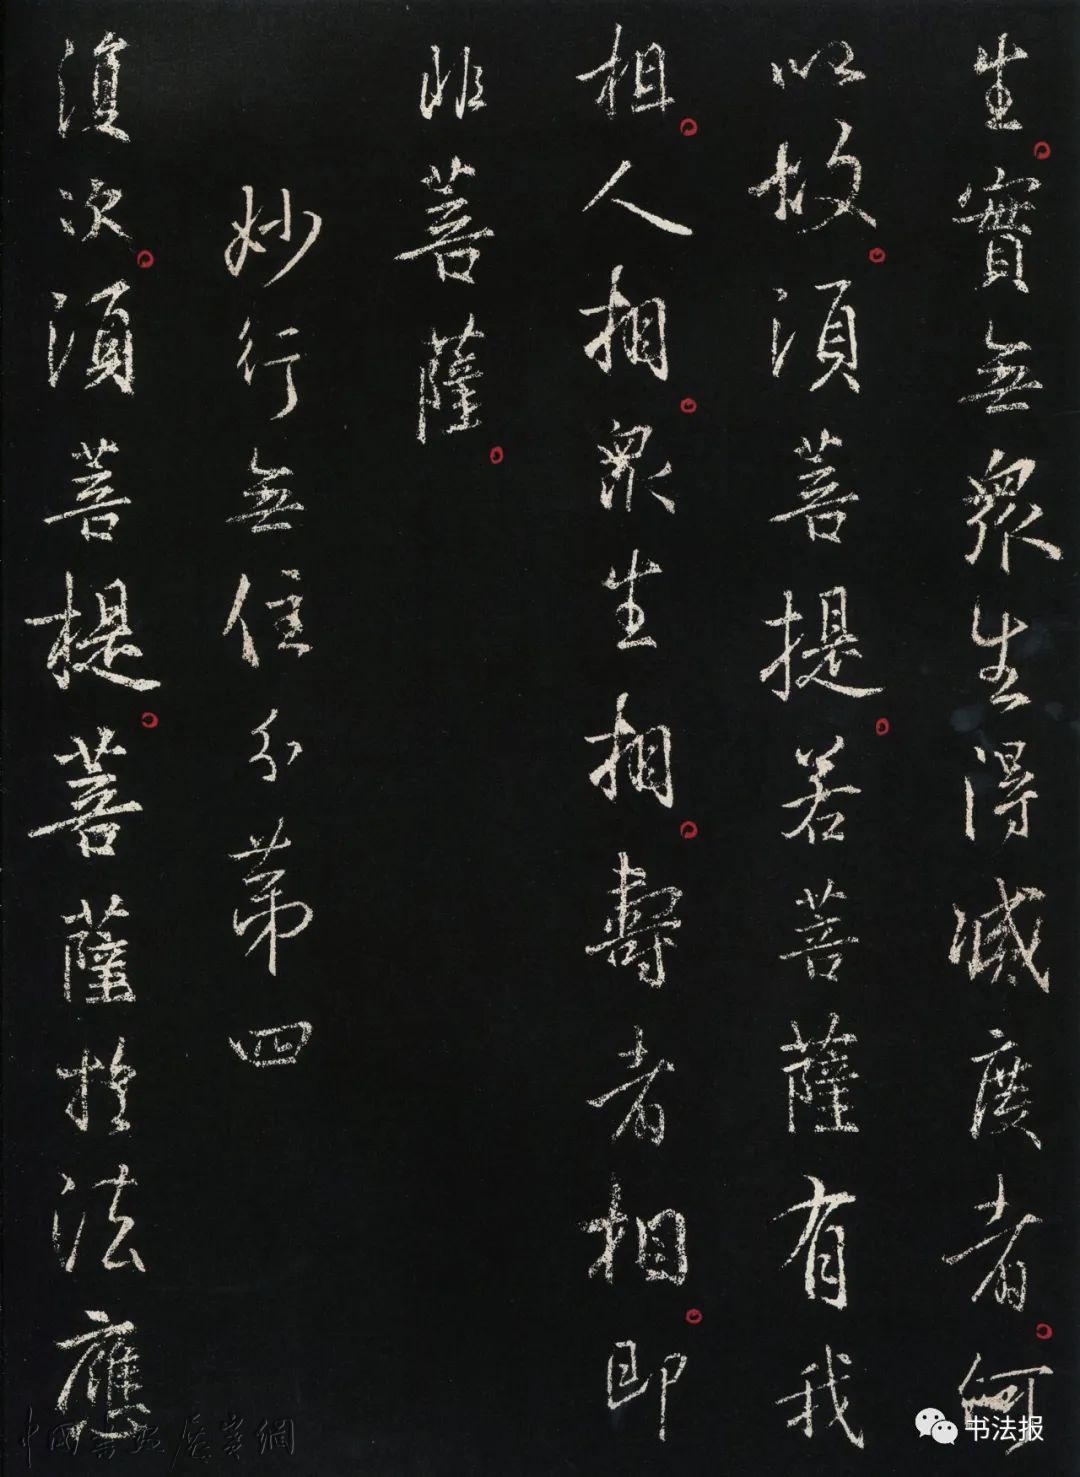 生。實無眾生得滅度者。何
以故。須菩提。若菩薩有我
相。人相。眾生相。壽者相。即
非菩薩。
妙行無住分第四
復次。須菩提。菩薩於法應
书法报